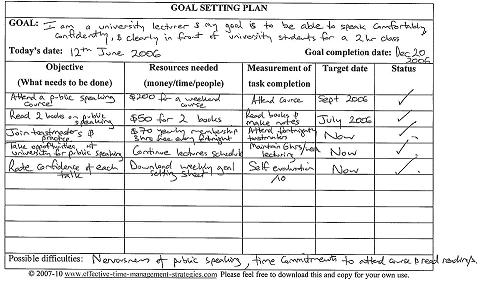 GOAL SETTING PLAN
GOAL: I am a university lecturer & my goal is to be able to speak comfortably,
confidently, & clearly in front of university students for a 2 hr class
Today's date: 12th June 2006 Goal completion date: Dec 20 2006
Objective Resources needed Measurement of Target date Status
(What needs to be done) (money/time/people) task completion
Attend a public speaking $200 for a weekend Attend course Sept 2006 ✓
course course
Read 2 books on public $50 for 2 books Read books & July 2006 ✓
speaking make notes
Join toastmasters & $70 yearly membership Attend fortnightly Now ✓
practice 3hrs free every fortnight toastmasters
Take opportunities at Continue lectures schedule Maintain 6hrs/week Now ✓
university for public speaking lecturing
Rate confidence of each Download weekly goal Self evaluation Now ✓
talk setting sheet /10
Possible difficulties: Nervousness of public speaking, time commitments to attend course & read
© 2007-10 www.effective-time-management-strategies.com Please feel free to download this and copy for your own use.